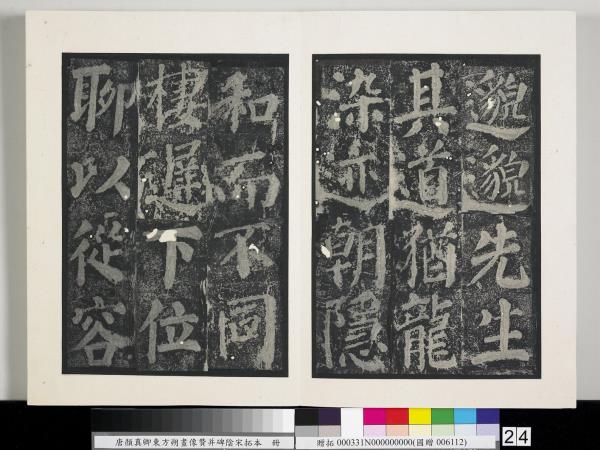 邈邈先生
其道猶龍
染亦朝隱
和而不同
棲遲下位
聊以從容
唐顏真卿東方朔畫像贊并碑陰宋拓本　冊
贈拓 000331N000000000(國贈 006112)
24